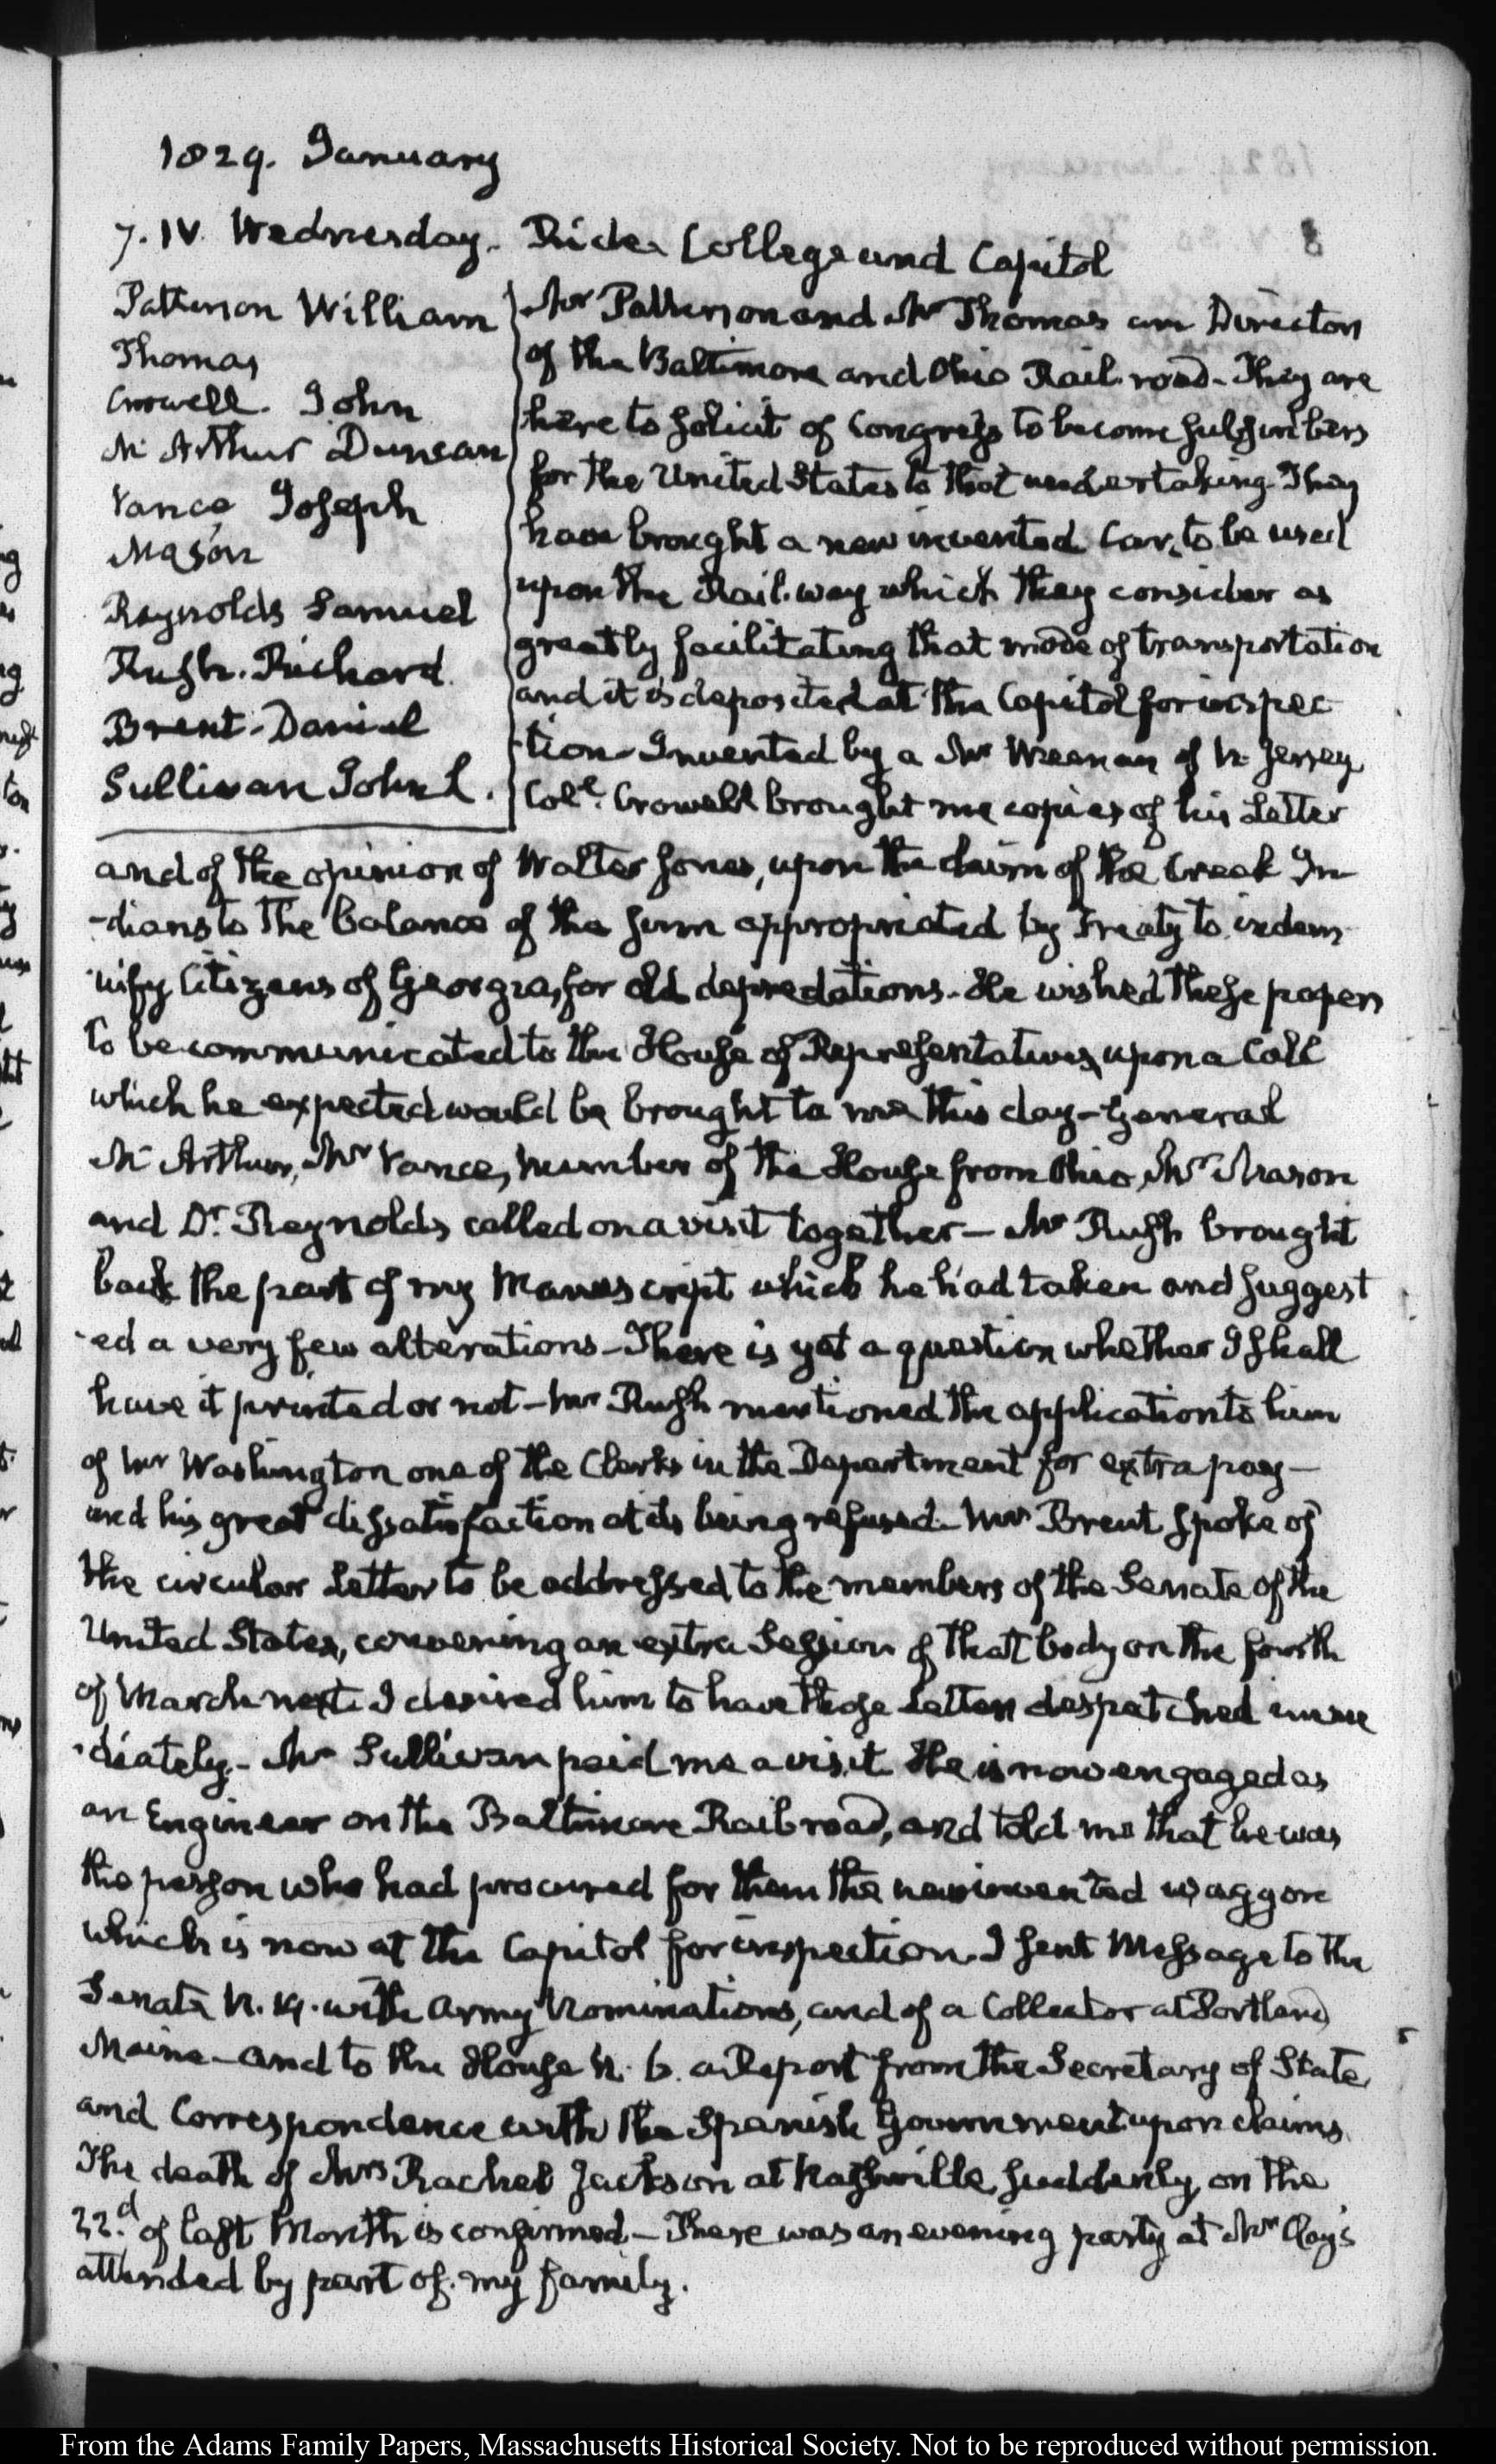 1829. January
7. IV. Wednesday. Ride. College and Capitol
Patterson William
Thomas
Crowell. John
Mc Arthur Duncan
Vance Joseph
Mason
Reynolds Samuel
Rush. Richard.
Brent. Daniel
Sullivan John L.
Mr Patterson and Mr Thomas are Directors
of the Baltimore and Ohio Rail-road. They are
here to solicit of Congress to become subscribers
for the United States to that undertaking. They
have brought a new invented Car, to be used
upon the Rail-way which they consider as
greatly facilitating that mode of transportation
and it is deposited at the Capitol for inspec
-tion. Invented by a Mr of N. Jersey.
Coll. Crowell brought me copies of his Letter
and of the opinion of Walter Jones, upon the claim of the Creek In
-dians to the balance of the sum appropriated by Treaty to indem
-nify Citizens of Georgia, for old depredations. He wished these papers
to be communicated to the House of Representatives, upon a Call
which he expected would be brought to me this day - General
Mc Arthur, Mr Vance, Member of the House from Ohio, Mr Mason
and Dr. Reynolds called on a visit together - Mr Rush brought
back the part of my Manuscript which he had taken and suggest
-ed a very few alterations - There is yet a question whether I shall
have it printed or not - Mr Rush mentioned the application to him
of Mr Washington one of the Clerks in the Department for extra pay -
and his great dissatisfaction at its being refused. Mr Brent spoke of
the circular Letter to be addressed to the members of the Senate of the
United States, convening an extra Session of that body on the fourth
of March next. I desired him to have those Letters despatched imme
-diately. - Mr Sullivan paid me a visit. He is now engaged as
an Engineer on the Baltimore Rail road, and told me that he was
the person who had procured for them the new invented waggon
which is now at the Capitol for inspection. I sent Message to the
Senate N. 19. with Army Nominations, and of a Collector at Portland
Maine - and to the House N. 6. a Report from the Secretary of State,
and Correspondence with the Spanish Government upon claims.
The death of Mrs Rachel Jackson at Nashville, suddenly, on the
22.d of last Month is confirmed - There was an evening party at Mrs Clay's
attended by part of my family.
From the Adams Family Papers, Massachusetts Historical Society. Not to be reproduced without permission.